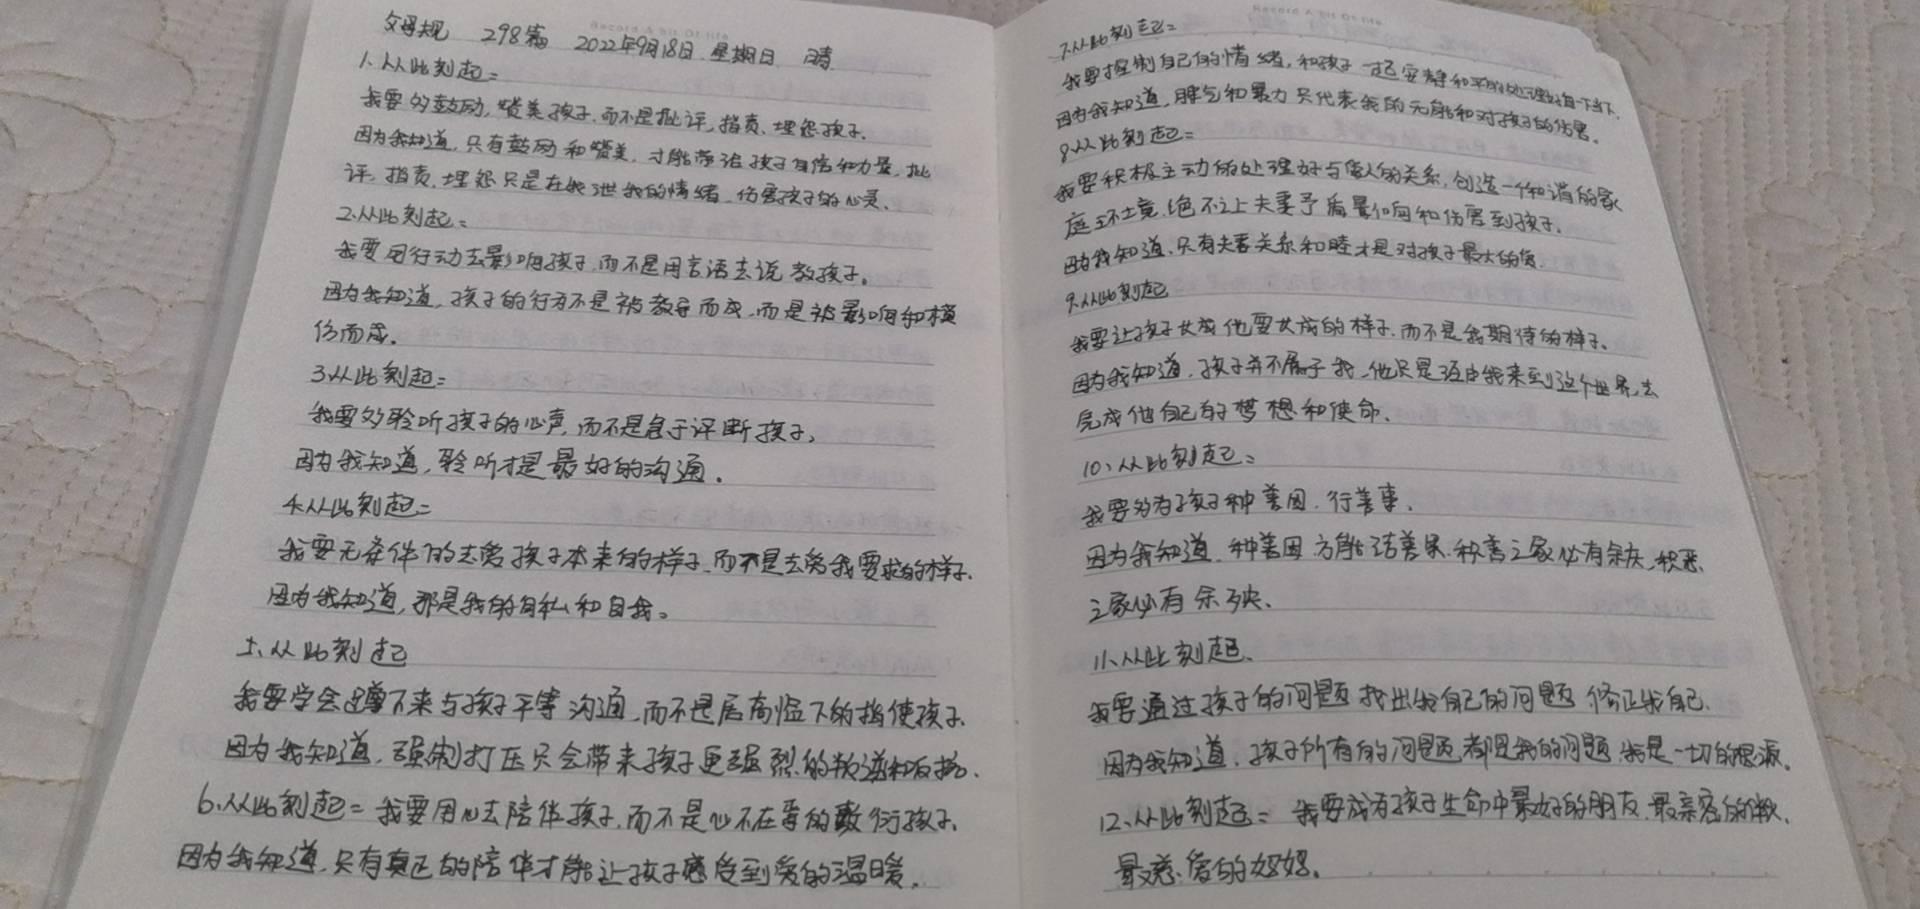 父母规 298篇 2022年9月18日 星期日 晴
1.从此刻起=
我要多鼓励,赞美孩子.而不是批评,指责、埋怨孩子.
因为我知道,只有鼓励和赞美,才能带给孩子自信和力量,批
评,指责,埋怨只是在发泄我的情绪、伤害孩子的心灵、
2.从此刻起=
我要用行动去影响孩子,而不是用言语去说教孩子。
因为我知道,孩子的行为不是被教导而成,而是被影响和模
仿而成.
3从此刻起=
我要多聆听孩子的心声,而不是急于评断孩子,
因为我知道,聆听才是最好的沟通.
4.从此刻起=
我要无条件的去爱孩子本来的样子、而不是去爱我要求的样子.
因为我知道,那是我的自私和自我。
5、从此刻起
我要学会蹲下来与孩子平等沟通,而不是居高临下的指使孩子.
因为我知道,强制打压只会带来孩子更强烈的叛逆和反抗.
6.从此刻起=我要用心去陪伴孩子,而不是心不在焉的敷衍孩子.
因为我知道,只有真正的陪伴才能让孩子感受到爱的温暖.
7.从此刻起=
我要控制自己的情绪,和孩子一起安静和平的处理好每一下当下.
因为我知道,脾气和暴力只代表我的无能和对孩子的伤害。
8从此刻起=
我要积极主动的处理好与爱人的关系,创造一个和谐的家
庭环境,绝不让夫妻矛盾影响和伤害到孩子.
因为我知道,只有夫妻关系和睦才是对孩子最大的爱.
9.从此刻起
我要让孩子长成他要长成的样子,而不是我期待的样子.
因为我知道,孩子并不属于我,他只是经由我来到这个世界,去
完成他自己的梦想和使命.
10、从此刻起=
我要多为孩子种善因,行善事.
因为我知道,种善因方能结善果.积善之家必有余庆,积恶
之家必有余殃.
11.从此刻起.
我要通过孩子的问题找出我自己的问题,修正我自己.
因为我知道,孩子所有的问题,都是我的问题,我是一切的根源.
12、从此刻起= 我要成为孩子生命中最好的朋友,最亲密的伙.
最慈爱的妈妈.